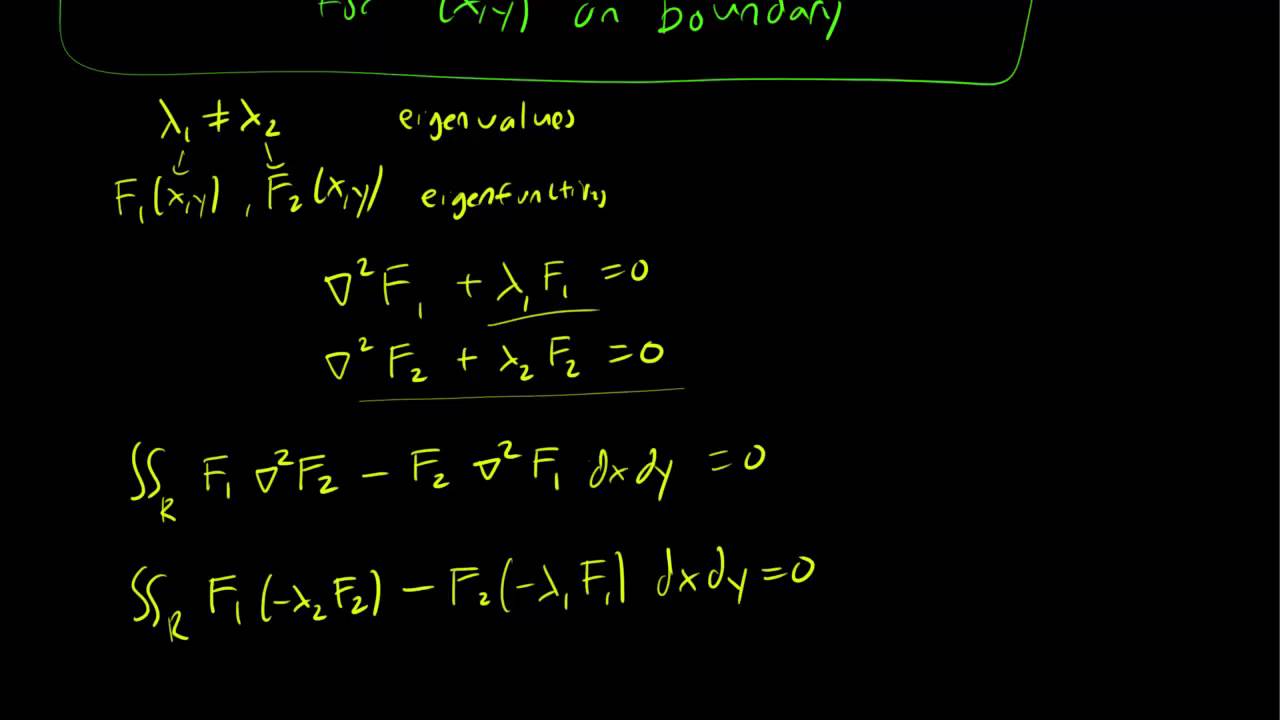 For (x,y) on boundary
λ₁ ≠ λ₂ eigenvalues
F₁(x,y), F₂(x,y) eigenfunctions
∇²F₁ + λ₁F₁ = 0
∇²F₂ + λ₂F₂ = 0
∬_R F₁ ∇²F₂ − F₂ ∇²F₁ dxdy = 0
∬_R F₁(−λ₂F₂) − F₂(−λ₁F₁) dxdy = 0